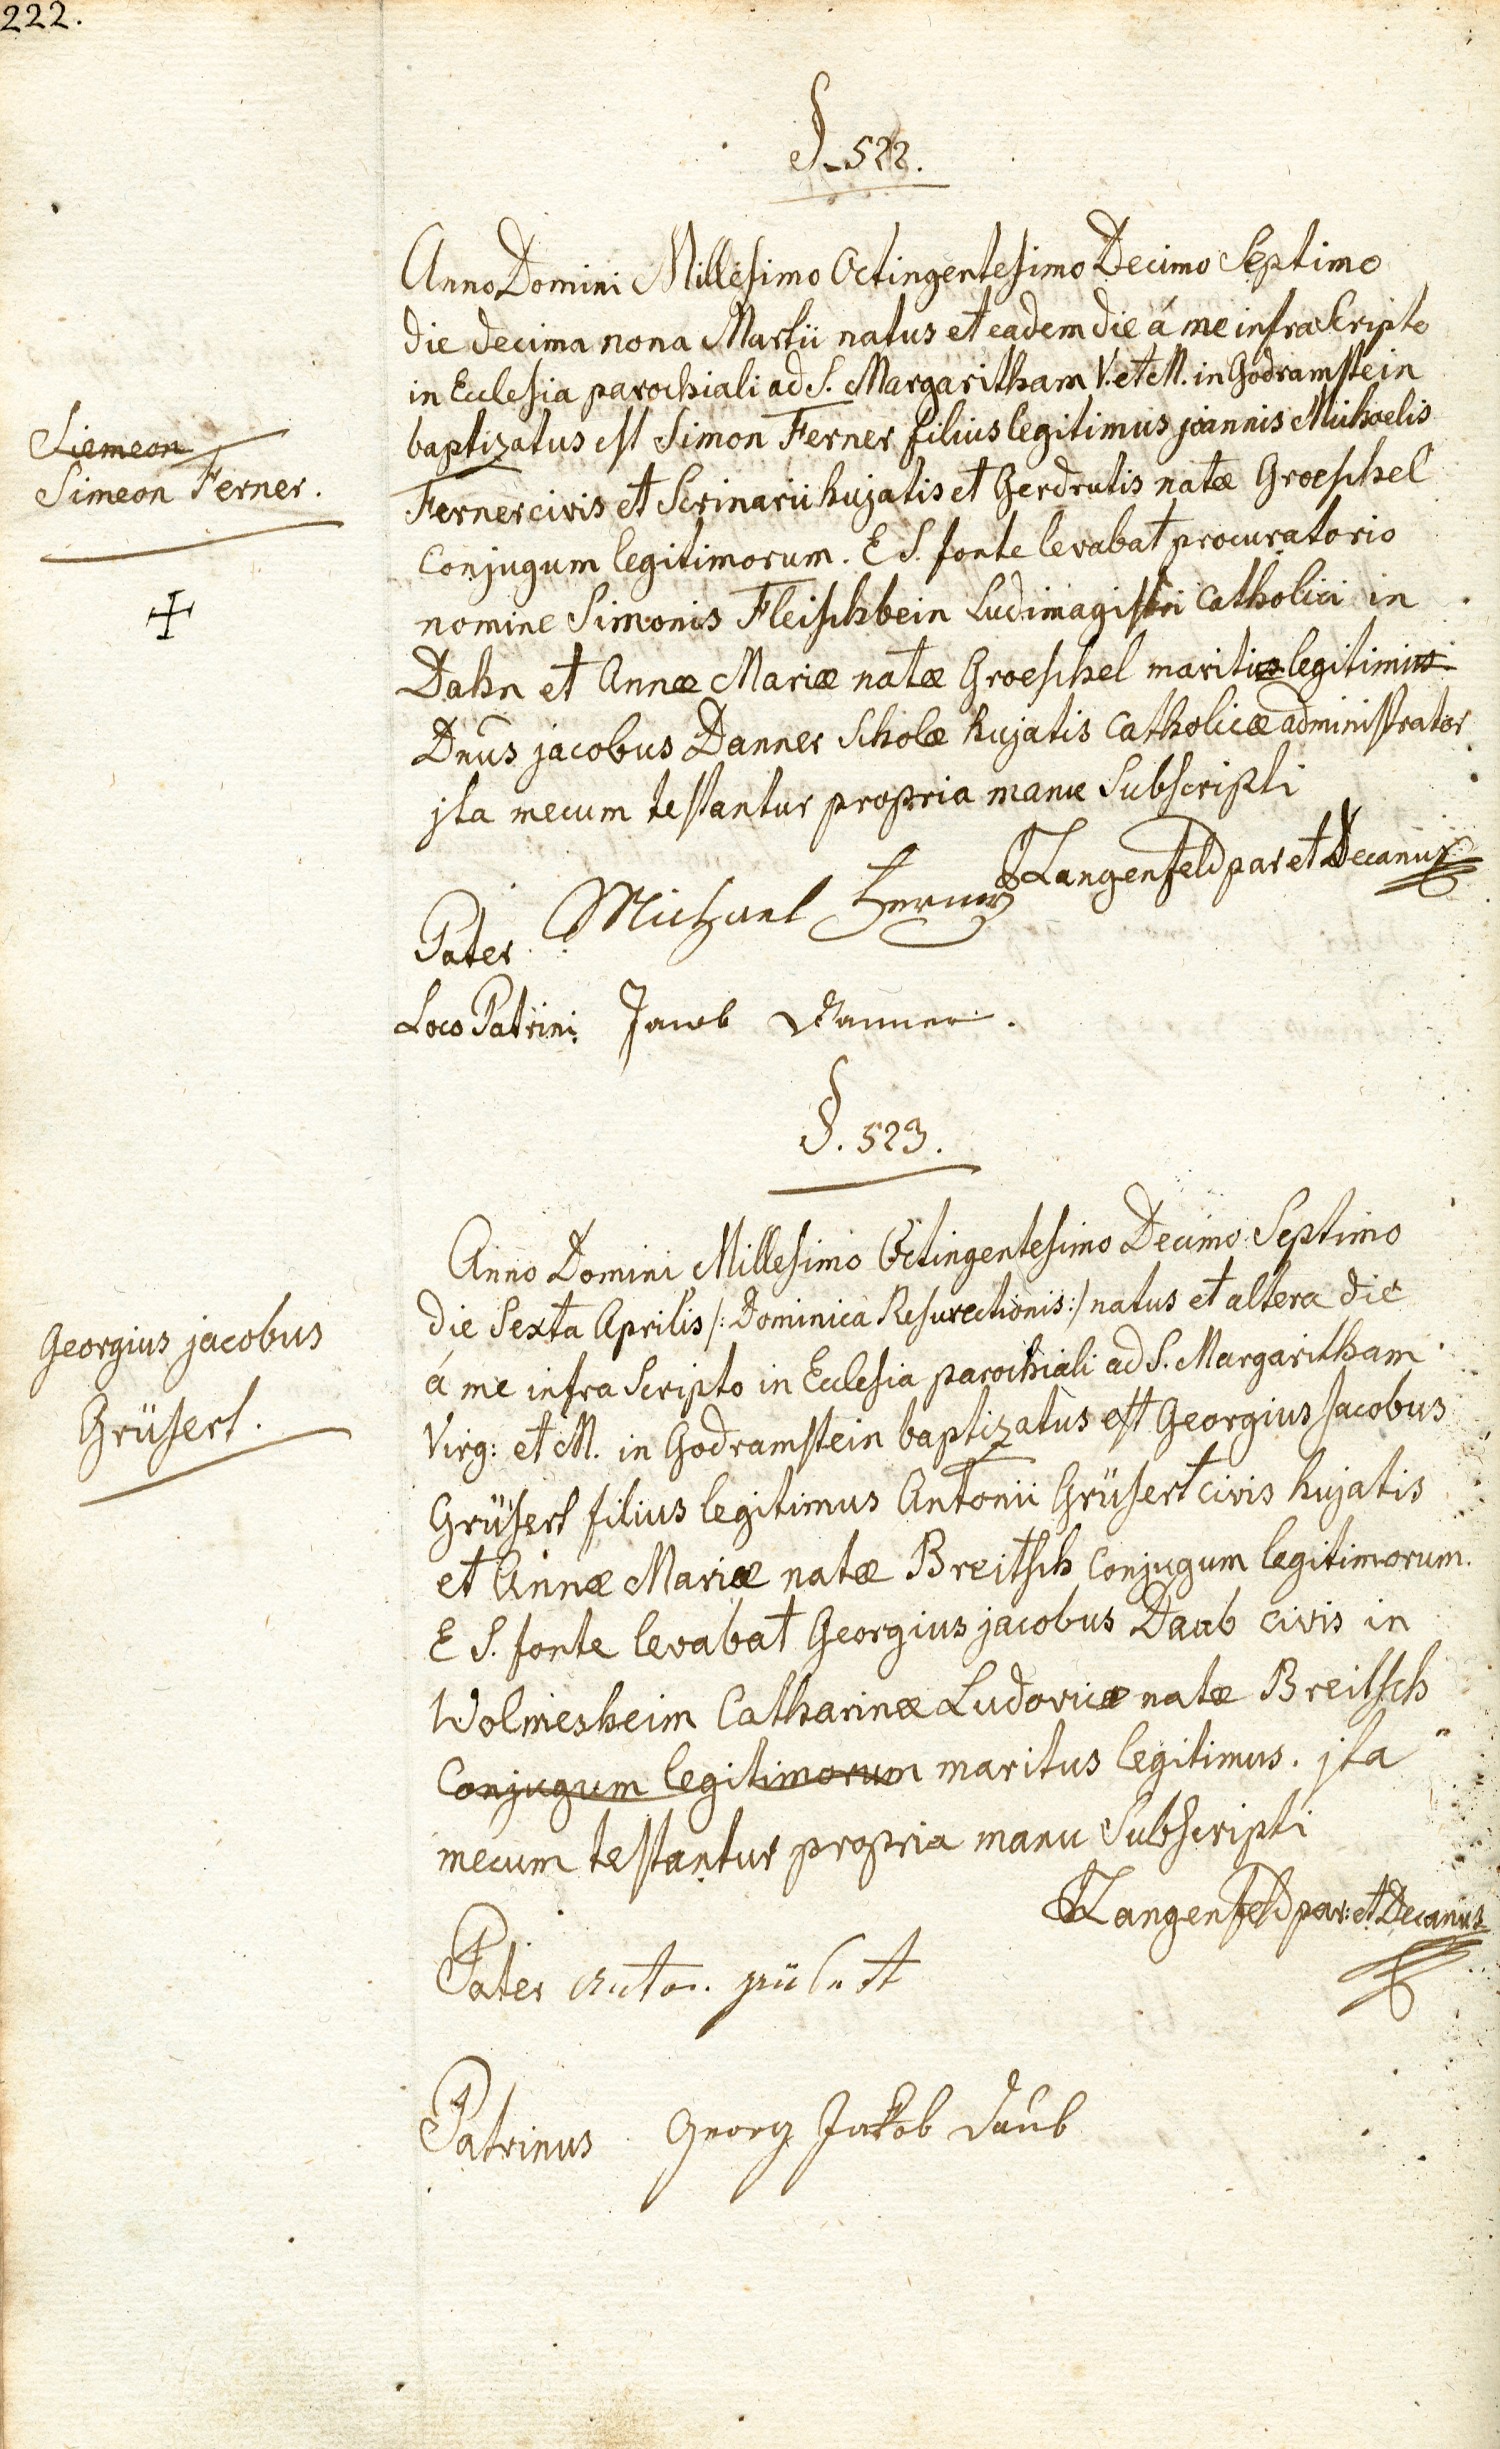 222.
§. 522.
Anno Domini Millesimo Octingentesimo Decimo Septimo
die decima nona Martii natus et eadem die á me infra Scripto
in Ecclesia parochiali ad S. Margaritham V. et M. in Godramstein
baptizatus est Simon Ferner filius legitimus joannis Michaelis
Siemeon
Simeon Ferner.
Ferner civis et Scrinarii hujatis et Gerdrutis natæ Groeschel
Conjugum legitimorum. E S. fonte levabat procuratorio
nomine Simonis Fleischbein Ludimagistri Catholici in
Dahn et Annæ Mariæ natæ Groeschel mariti legitimi
Dnus jacobus Danner Scholæ hujatis Catholicæ administrator
jta mecum testantur propria manu Subscripti
Langenfeld par et Decanus
Pater Michael Ferner
Loco Patrini Jacob Danner.
§. 523.
Anno Domini Millesimo Octingentesimo Decimo Septimo
die Sexta Aprilis /: Dominica Resurectionis:/ natus et altera die
Georgius jacobus
Grüsert.
á me infra Scripto in Ecclesia parochiali ad S. Margaritham
Virg: et M. in Godramstein baptizatus est Georgius Jacobus
Grüsert filius legitimus Antonii Grüsert civis hujatis
et Annæ Mariæ natæ Breitsch Conjugum legitimorum.
E S. fonte levabat Georgius jacobus Daub civis in
Wolmesheim Catharinæ Ludovicæ natæ Breitsch
Conjugum legitimorum maritus legitimus. jta
mecum testantur propria manu Subscripti
Langenfeld par: et Decanus
Pater Anton grüsert
Patrinus Georg Jakob Daub